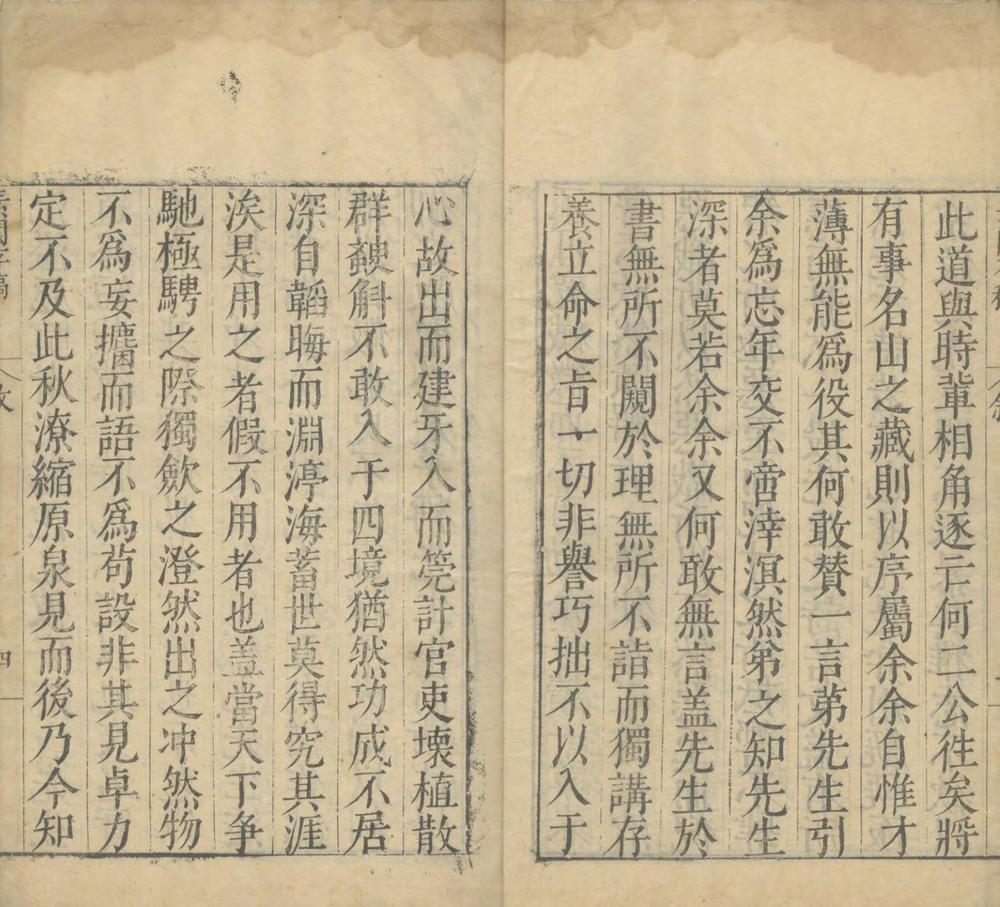 此道與時軰相角逐亡何二公徃矣將
有事名山之藏則以序屬余余自惟才
薄無能爲役其何敢賛一言弟先生引
余爲忘年交不啻涬溟然弟之知先生
深者莫若余余又何敢無言盖先生於
書無所不闚於理無所不詣而獨講存
養立命之㫖一切非譽巧拙不以入于
心故出而建牙入而筦計官吏壊植散
群䤹斛不敢入于四境猶然功成不居
深自韜晦而淵渟海蓄世莫得究其涯
涘是用之者假不用者也盖當天下争
馳極騁之際獨歛之澄然出之冲然物
不爲妄攟而語不爲茍設非其見卓力
定不及此秋潦縮原泉見而後乃今知
四